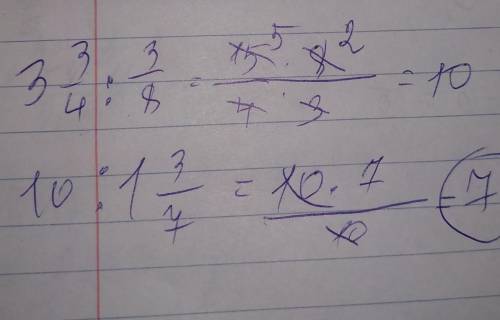 3 3/4 : 3/8 = 15⁵ · 8² / 4 · 3 = 10
10 : 1 3/7 = 10 · 7 / 10 = 7